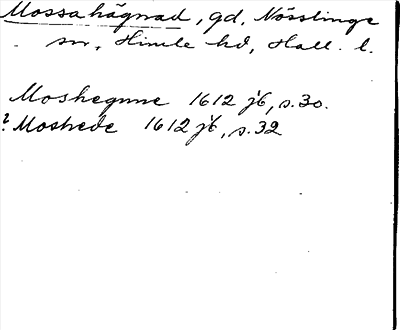 Mossahägnad, gd, Nösslinge
sn, Himle hd, Hall. l.
Moshegnne 1612 jb, s. 30.
? Moshede 1612 jb, s. 32